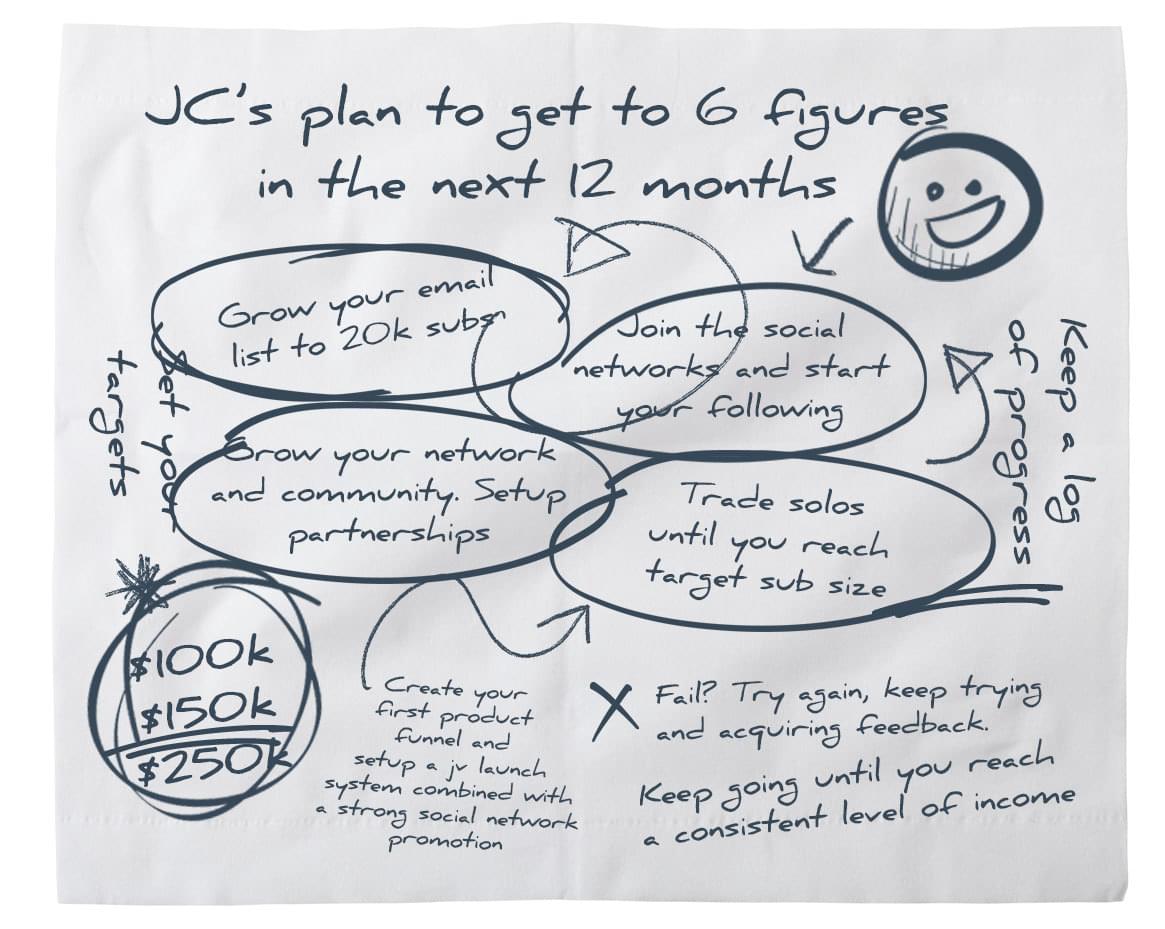 JC's plan to get to 6 figures
in the next 12 months
Grow your email
list to 20k subs
Join the social
networks and start
your following
Set your
targets
Keep a log
of progress
Grow your network
and community. Setup
partnerships
Trade solos
until you reach
target sub size
$100k
$150k
$250k
Create your
first product
funnel and
setup a jv launch
system combined with
a strong social network
promotion
Fail? Try again, keep trying
and acquiring feedback.
Keep going until you reach
a consistent level of income